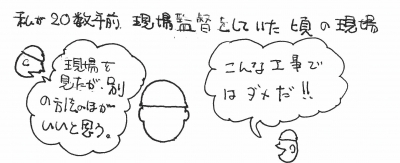 私が20数年前、現場監督をしていた頃の現場
現場を
見たが、別
の方法のほが
いいと思う。
こんな工事で
はダメだ!!